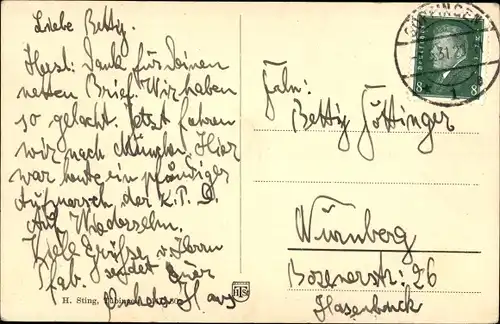 Liebe Betty.
Herzl. Dank für Deinen
netten Brief. Wir haben
so gelacht. Jetzt fahren
wir nach München. Hier
war heute ein
Aufmarsch der K.P.D.
Auf Wiedersehn.
Viele Grüße v. Herrn
sendet Euer
H. Sting, Tübingen
HST
8
Frln:
Betty Göttinger
Nürnberg
Bozenerstr: 26
Hasenbuck